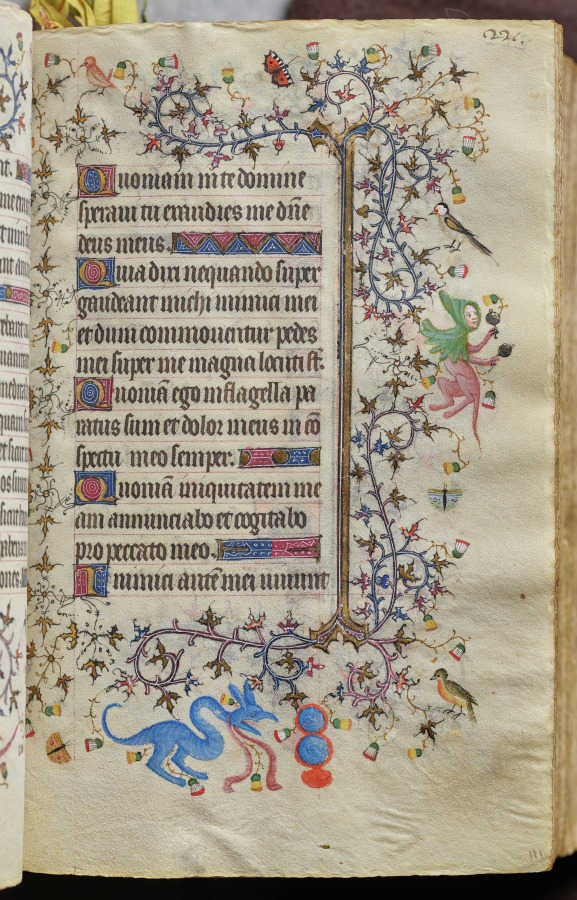 221.
Quoniam in te domine
speraui tu exaudies me dn̄e
deus meus.
Quia dixi nequando super
gaudeant michi inimici mei
et dum commouentur pedes
mei super me magna locuti st̄.
Quoniā ego in flagella pa
ratus sum et dolor meus in cō
spectu meo semper.
Quoniā iniquitatem me
am annunciabo et cogitabo
pro peccato meo.
Inimici autē mei uiuunt